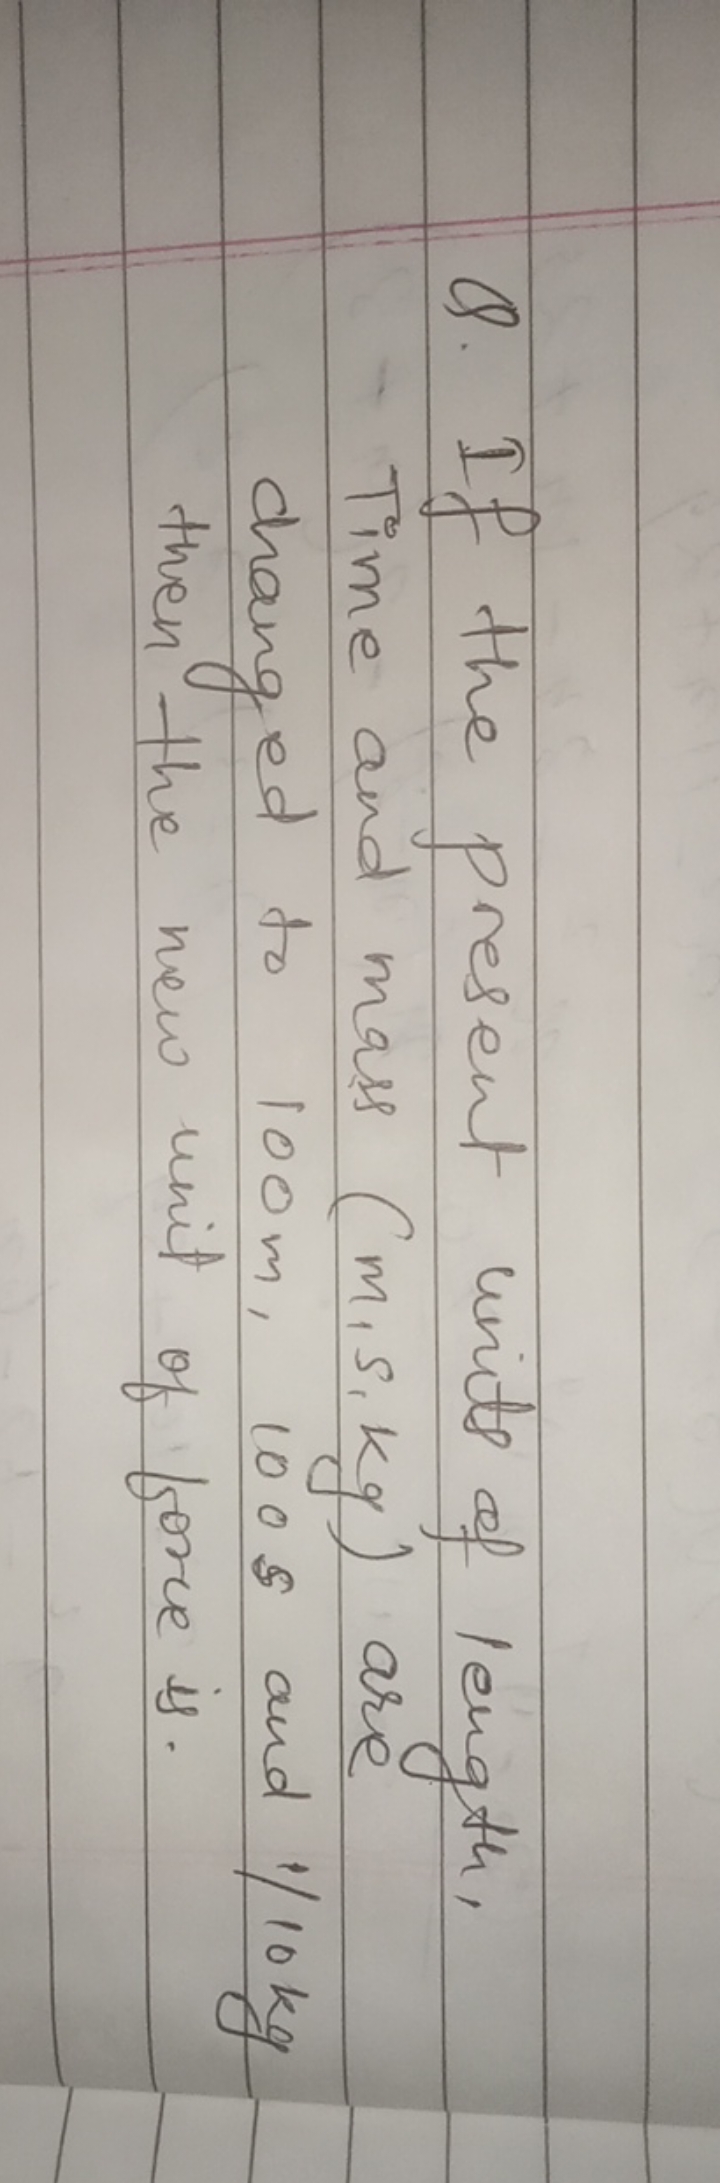 Q. If the present units of length,
Time and mass (m, s, kg) are
changed to 100m, 100s and 1/10kg
then the new unit of force is.